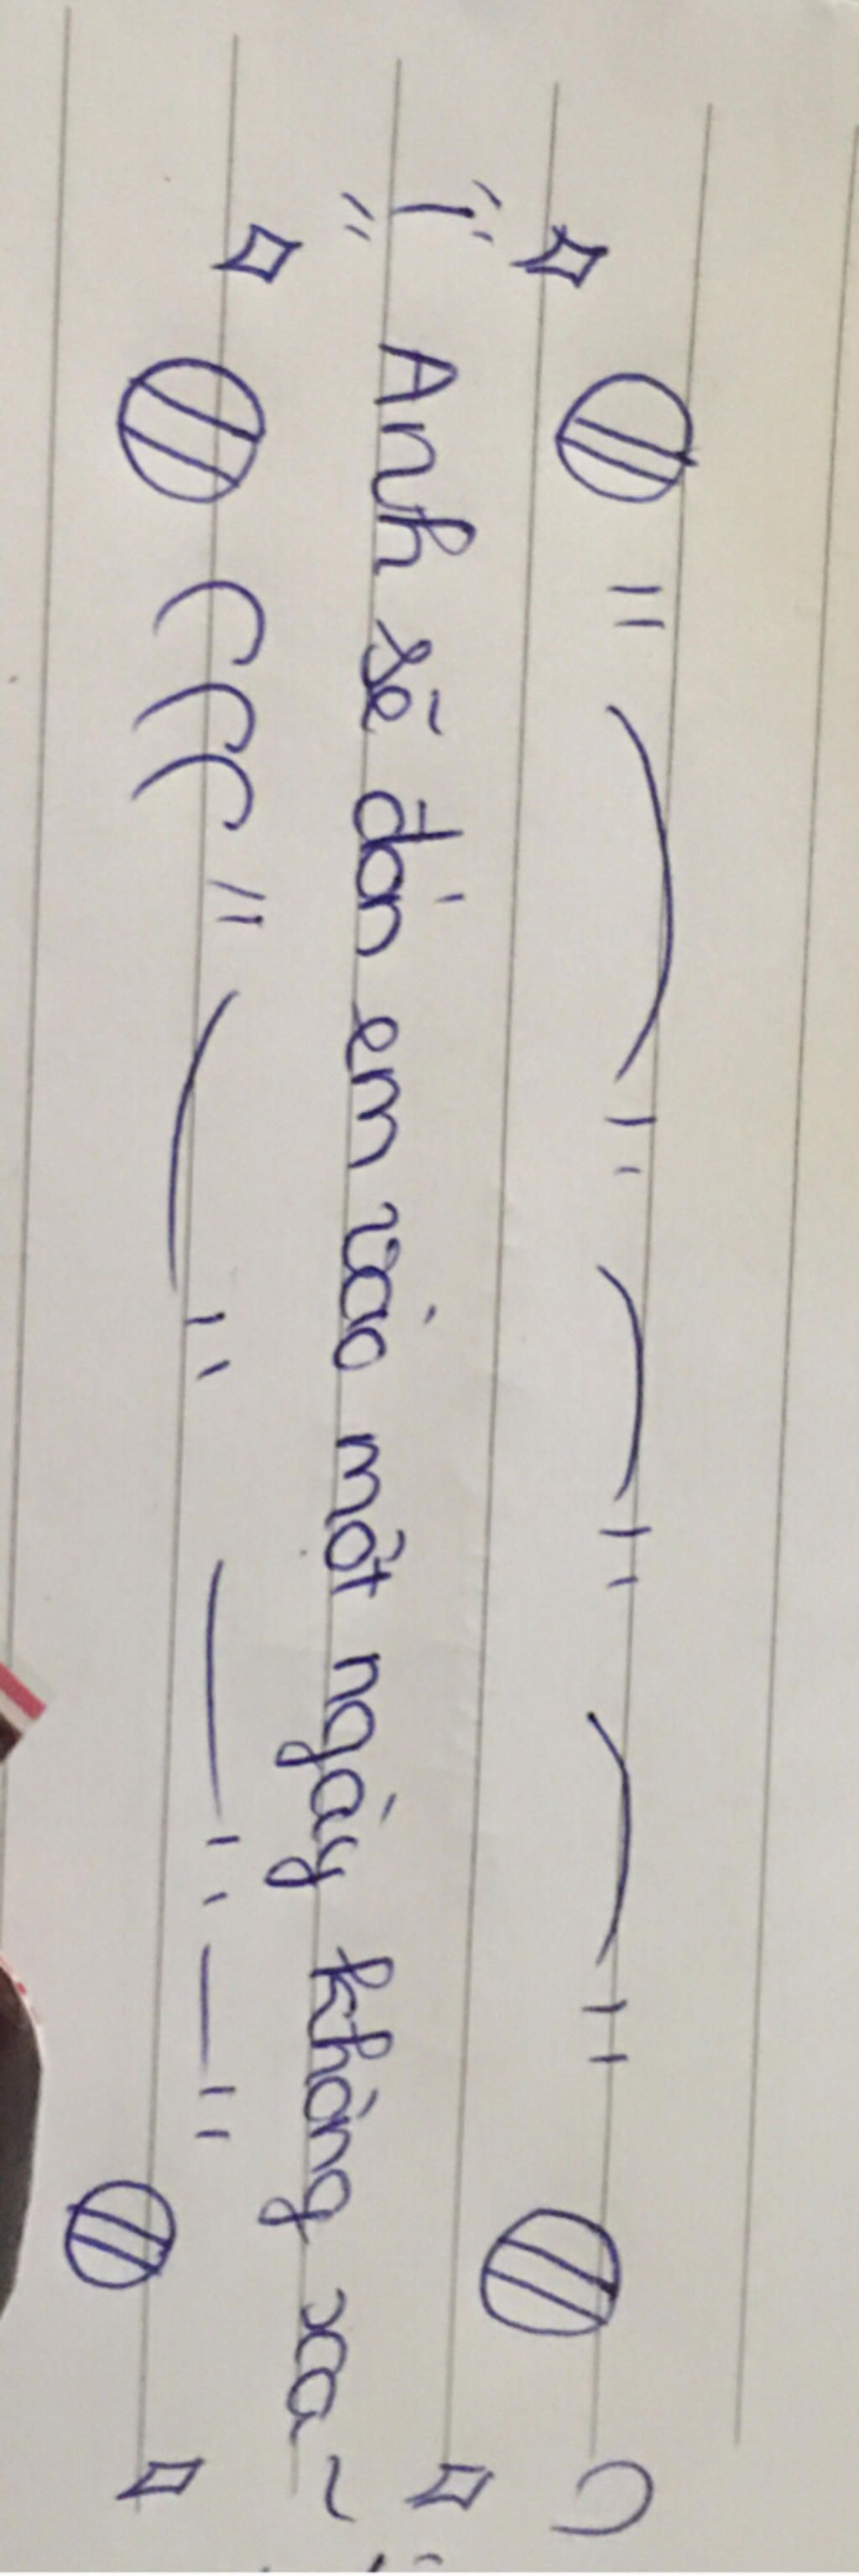 Anh sẽ đón em vào một ngày không xa ~